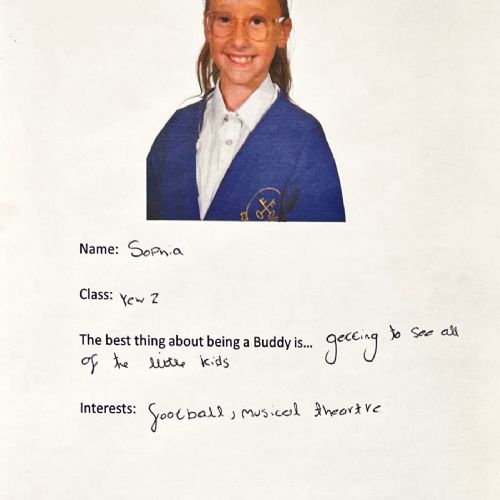 Name: Sophia
Class: Yew 2
The best thing about being a Buddy is... getting to see all
of the little kids
Interests: football, musical theortre